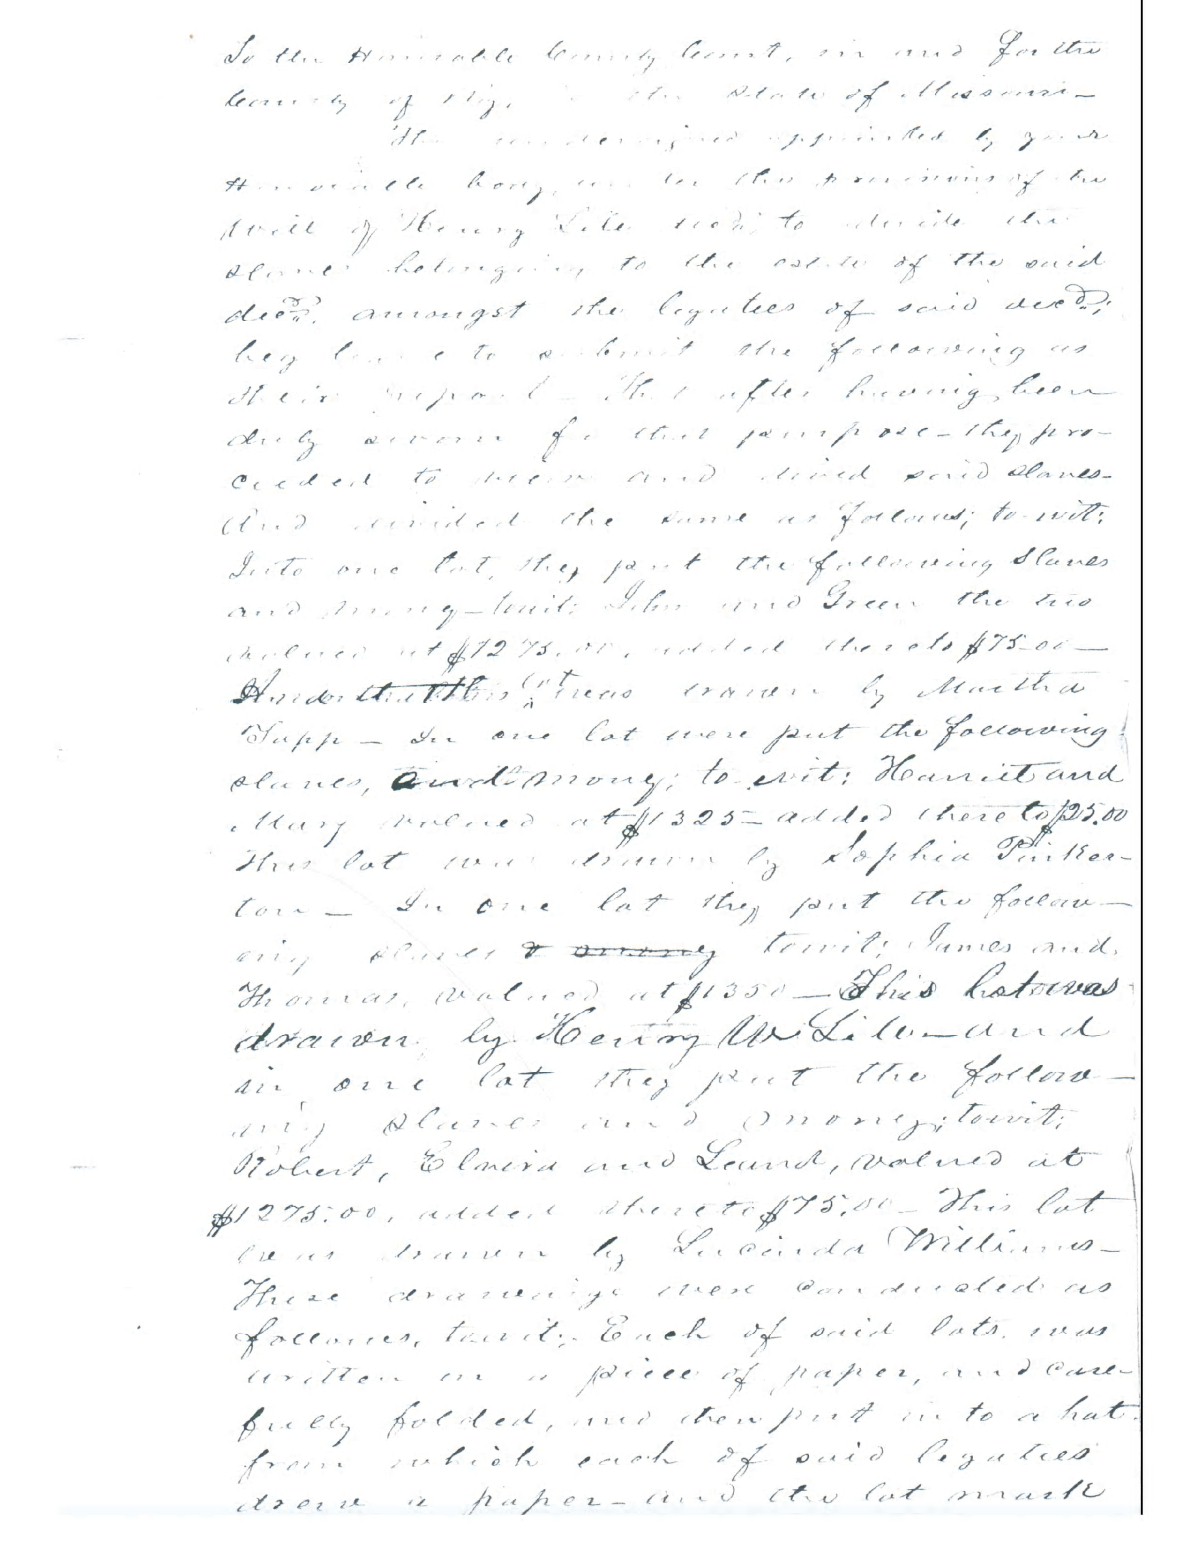 To the Honorable County Court, in and for the
County of the State of Missouri –
The undersigned appointed by your
Honorable body, under the provisions of the
Will of Henry Lile decd; to divide the
slaves belonging to the estate of the said
decd. amongst the legatees of said decd;
beg leave to submit the following as
their report – That after having been
duly sworn for that purpose – they pro-
ceeded to view and divid said slaves –
And divided the same as follows; to-wit;
Into one lot, they put the following Slaves
and mony – towit; John and Green the two
valued at $1275.00, added thereto $75.00 –
lot was drawn by Martha
Tapp – In one lot were put the following
slaves, and mony; to-wit: Harriet and
Mary valued at $1325 – added thereto $25.00
This lot was drawn by Sophia Pinker-
ton – In one lot they put the follow-
ing slaves & mony towit; James and
Thomas, valued at $1350 – This lot was
drawn by Henry W Lile – and
in one lot they put the follow-
ing slaves and money; towit;
Robert, Elvira and Leand, valued at
$1275.00, added thereto $75.00 – This lot
was drawn by Lucinda Williams –
These drawings were conducted as
follows, towit; Each of said lots was
written on a piece of paper, and care-
fully folded, and then put in to a hat
from which each of said legatees
drew a paper – and the lot mark